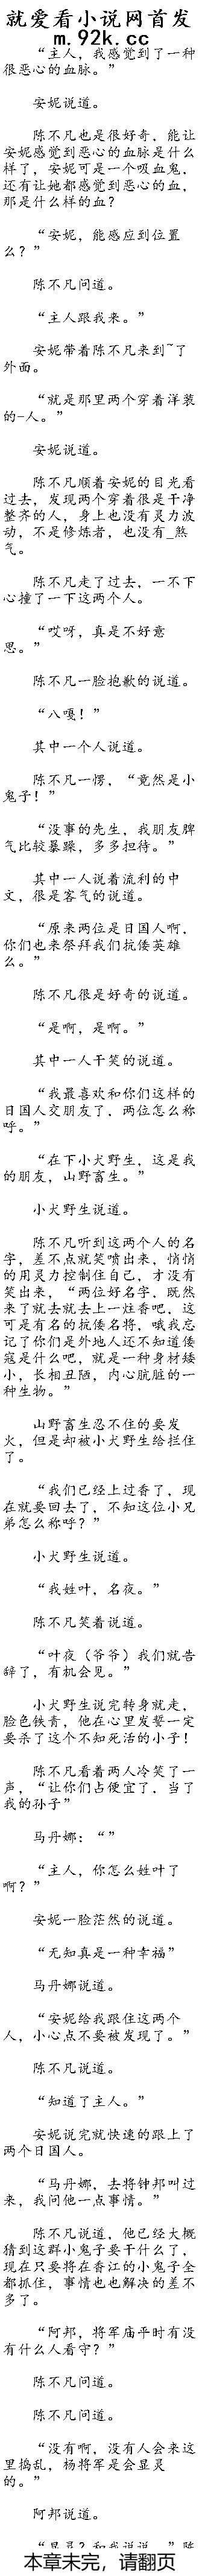 就爱看小说网首发
m.92k.cc
“主人，我感觉到了一种
很恶心的血脉。”
安妮说道。
陈不凡也是很好奇，能让
安妮感觉到恶心的血脉是什么
样了，安妮可是一个吸血鬼，
还有让她都感觉到恶心的血，
那是什么样的血？
“安妮，能感应到位置
么？”
陈不凡问道。
“主人跟我来。”
安妮带着陈不凡来到~了
外面。
“就是那里两个穿着洋装
的-人。”
安妮说道。
陈不凡顺着安妮的目光看
过去，发现两个穿着很是干净
整齐的人，身上也没有灵力波
动，不是修炼者，也没有_煞
气。
陈不凡走了过去，一不下
心撞了一下这两个人。
“哎呀，真是不好意
思。”
陈不凡一脸抱歉的说道。
“八嘎！”
其中一个人说道。
陈不凡一愣，“竟然是小
鬼子！”
“没事的先生，我朋友脾
气比较暴躁，多多担待。”
其中一人说着流利的中
文，很是客气的说道。
“原来两位是日国人啊，
你们也来祭拜我们抗倭英雄
么。”
陈不凡很是好奇的说道。
“是啊，是啊。”
其中一人干笑的说道。
“我最喜欢和你们这样的
日国人交朋友了，两位怎么称
呼。”
“在下小犬野生，这是我
的朋友，山野畜生。”
小犬野生说道。
陈不凡听到这两个人的名
字，差不点就笑喷出来，悄悄
的用灵力控制住自己，才没有
笑出来，“两位好名字，既然
来了就去就去上一炷香吧，这
可是有名的抗倭名将，哦我忘
记了你们是外地人还不知道倭
寇是什么吧，就是一种身材矮
小，长相丑陋，内心肮脏的一
种生物。”
山野畜生忍不住的要发
火，但是却被小犬野生给拦住
了。
“我们已经上过香了，现
在就要回去了，不知这位小兄
弟怎么称呼？”
小犬野生说道。
“我姓叶，名夜。”
陈不凡笑着说道。
“叶夜（爷爷）我们就告
辞了，有机会见。”
小犬野生说完转身就走，
脸色铁青，他在心里发誓一定
要杀了这个不知死活的小子！
陈不凡看着两人冷笑了一
声，“让你们占便宜了，当了
我的孙子”
马丹娜：“”
“主人，你怎么姓叶了
啊？”
安妮一脸茫然的说道。
“无知真是一种幸福”
马丹娜说道。
“安妮给我跟住这两个
人，小心点不要被发现了。”
陈不凡说道。
“知道了主人。”
安妮说完就快速的跟上了
两个日国人。
“马丹娜，去将钟邦叫过
来，我问他一点事情。”
陈不凡说道，他已经大概
猜到这群小鬼子要干什么了，
现在只要将在香江的小鬼子全
都抓住，事情也也解决的差不
多了。
“阿邦，将军庙平时有没
有什么人看守？”
陈不凡问道。
陈不凡问道。
“没有啊，没有人会来这
里捣乱，杨将军是会显灵
的。”
阿邦说道。
本章未完，请翻页